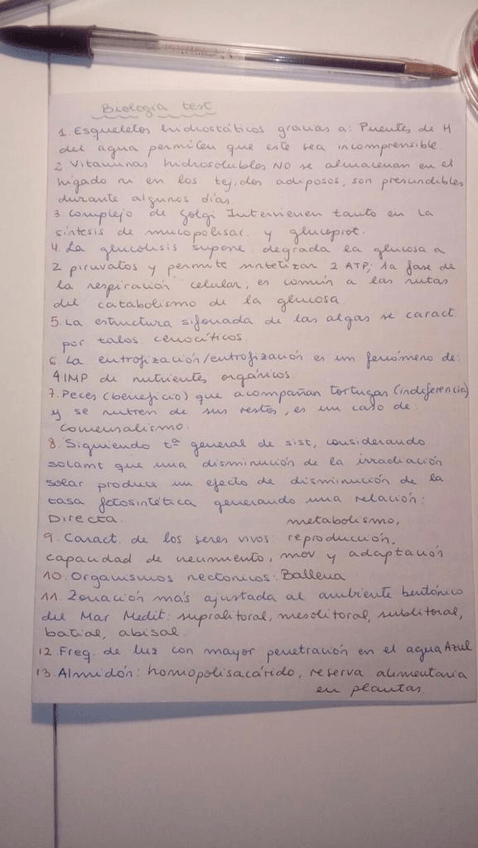 Biología test
1. Esqueletos hidrostáticos gracias a: Puentes de H
del agua permiten que este sea incomprensible.
2. Vitaminas hidrosolubles NO se almacenan en el
hígado ni en los tejidos adiposos, son prescindibles
durante algunos días.
3. Complejo de Golgi Intervienen tanto en la
síntesis de mucopolisac. y glucoprot.
4. La glucólisis supone: degrada la glucosa a
2 piruvatos y permite sintetizar 2 ATP; 1a fase de
la respiración celular, es común a las rutas
del catabolismo de la glucosa
5. La estructura sifonada de las algas se caract.
por talos cenocíticos
6. La eutrofización/eutrofización es un fenómeno de:
IMP de nutrientes orgánicos.
7. Peces (beneficio) que acompañan tortugas (indiferencia)
y se nutren de sus restos, es un caso de:
Comensalismo.
8. Siguiendo tª general de sist, considerando
solamt que una disminución de la irradiación
solar produce un efecto de disminución de la
tasa fotosintética generando una relación:
Directa.
metabolismo,
9. Caract. de los seres vivos: reproducción,
capacidad de crecimiento, mov y adaptación
10. Organismos nectónicos: Ballena
11. Zonación más ajustada al ambiente bentónico
del Mar Medit: supralitoral, mesolitoral, sublitoral,
batial, abisal.
12. Freq. de luz con mayor penetración en el agua Azul
13. Almidón: homopolisacárido, reserva alimentaria
en plantas